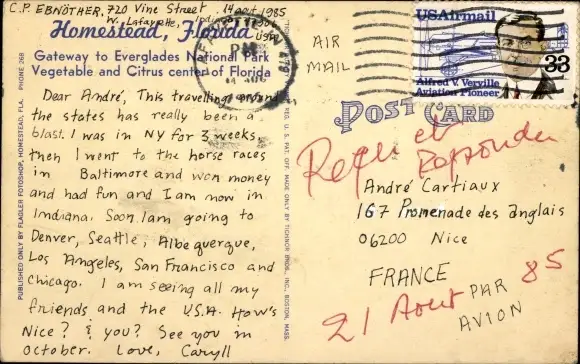 C.P. EBNÖTHER, 720 Vine Street, 14 août 1985
W. Lafayette, Indiana
USA
Homestead, Florida
Gateway to Everglades National Park
Vegetable and Citrus center of Florida
Dear André, This travelling around
the states has really been a
blast. I was in NY for 3 weeks,
then I went to the horse races
in Baltimore and won money
and had fun and I am now in
Indiana. Soon I am going to
Denver, Seattle, Albequerque,
Los Angeles, San Francisco and
Chicago. I am seeing all my
friends and the U.S.A. How's
Nice? & you? See you in
October. Love, Caryll
PUBLISHED ONLY BY FLADLER FOTOSHOP, HOMESTEAD, FLA. PHONE 268
REG. U. S. PAT. OFF. MADE ONLY BY TICHNOR BROS., INC., BOSTON, MASS.
PM
AIR
MAIL
USAirmail
33
Alfred V. Verville
Aviation Pioneer
POST CARD
Reçu et
Repondu
André Cartiaux
167 Promenade des anglais
06200 Nice
FRANCE
PAR
AVION
21 Aout 85